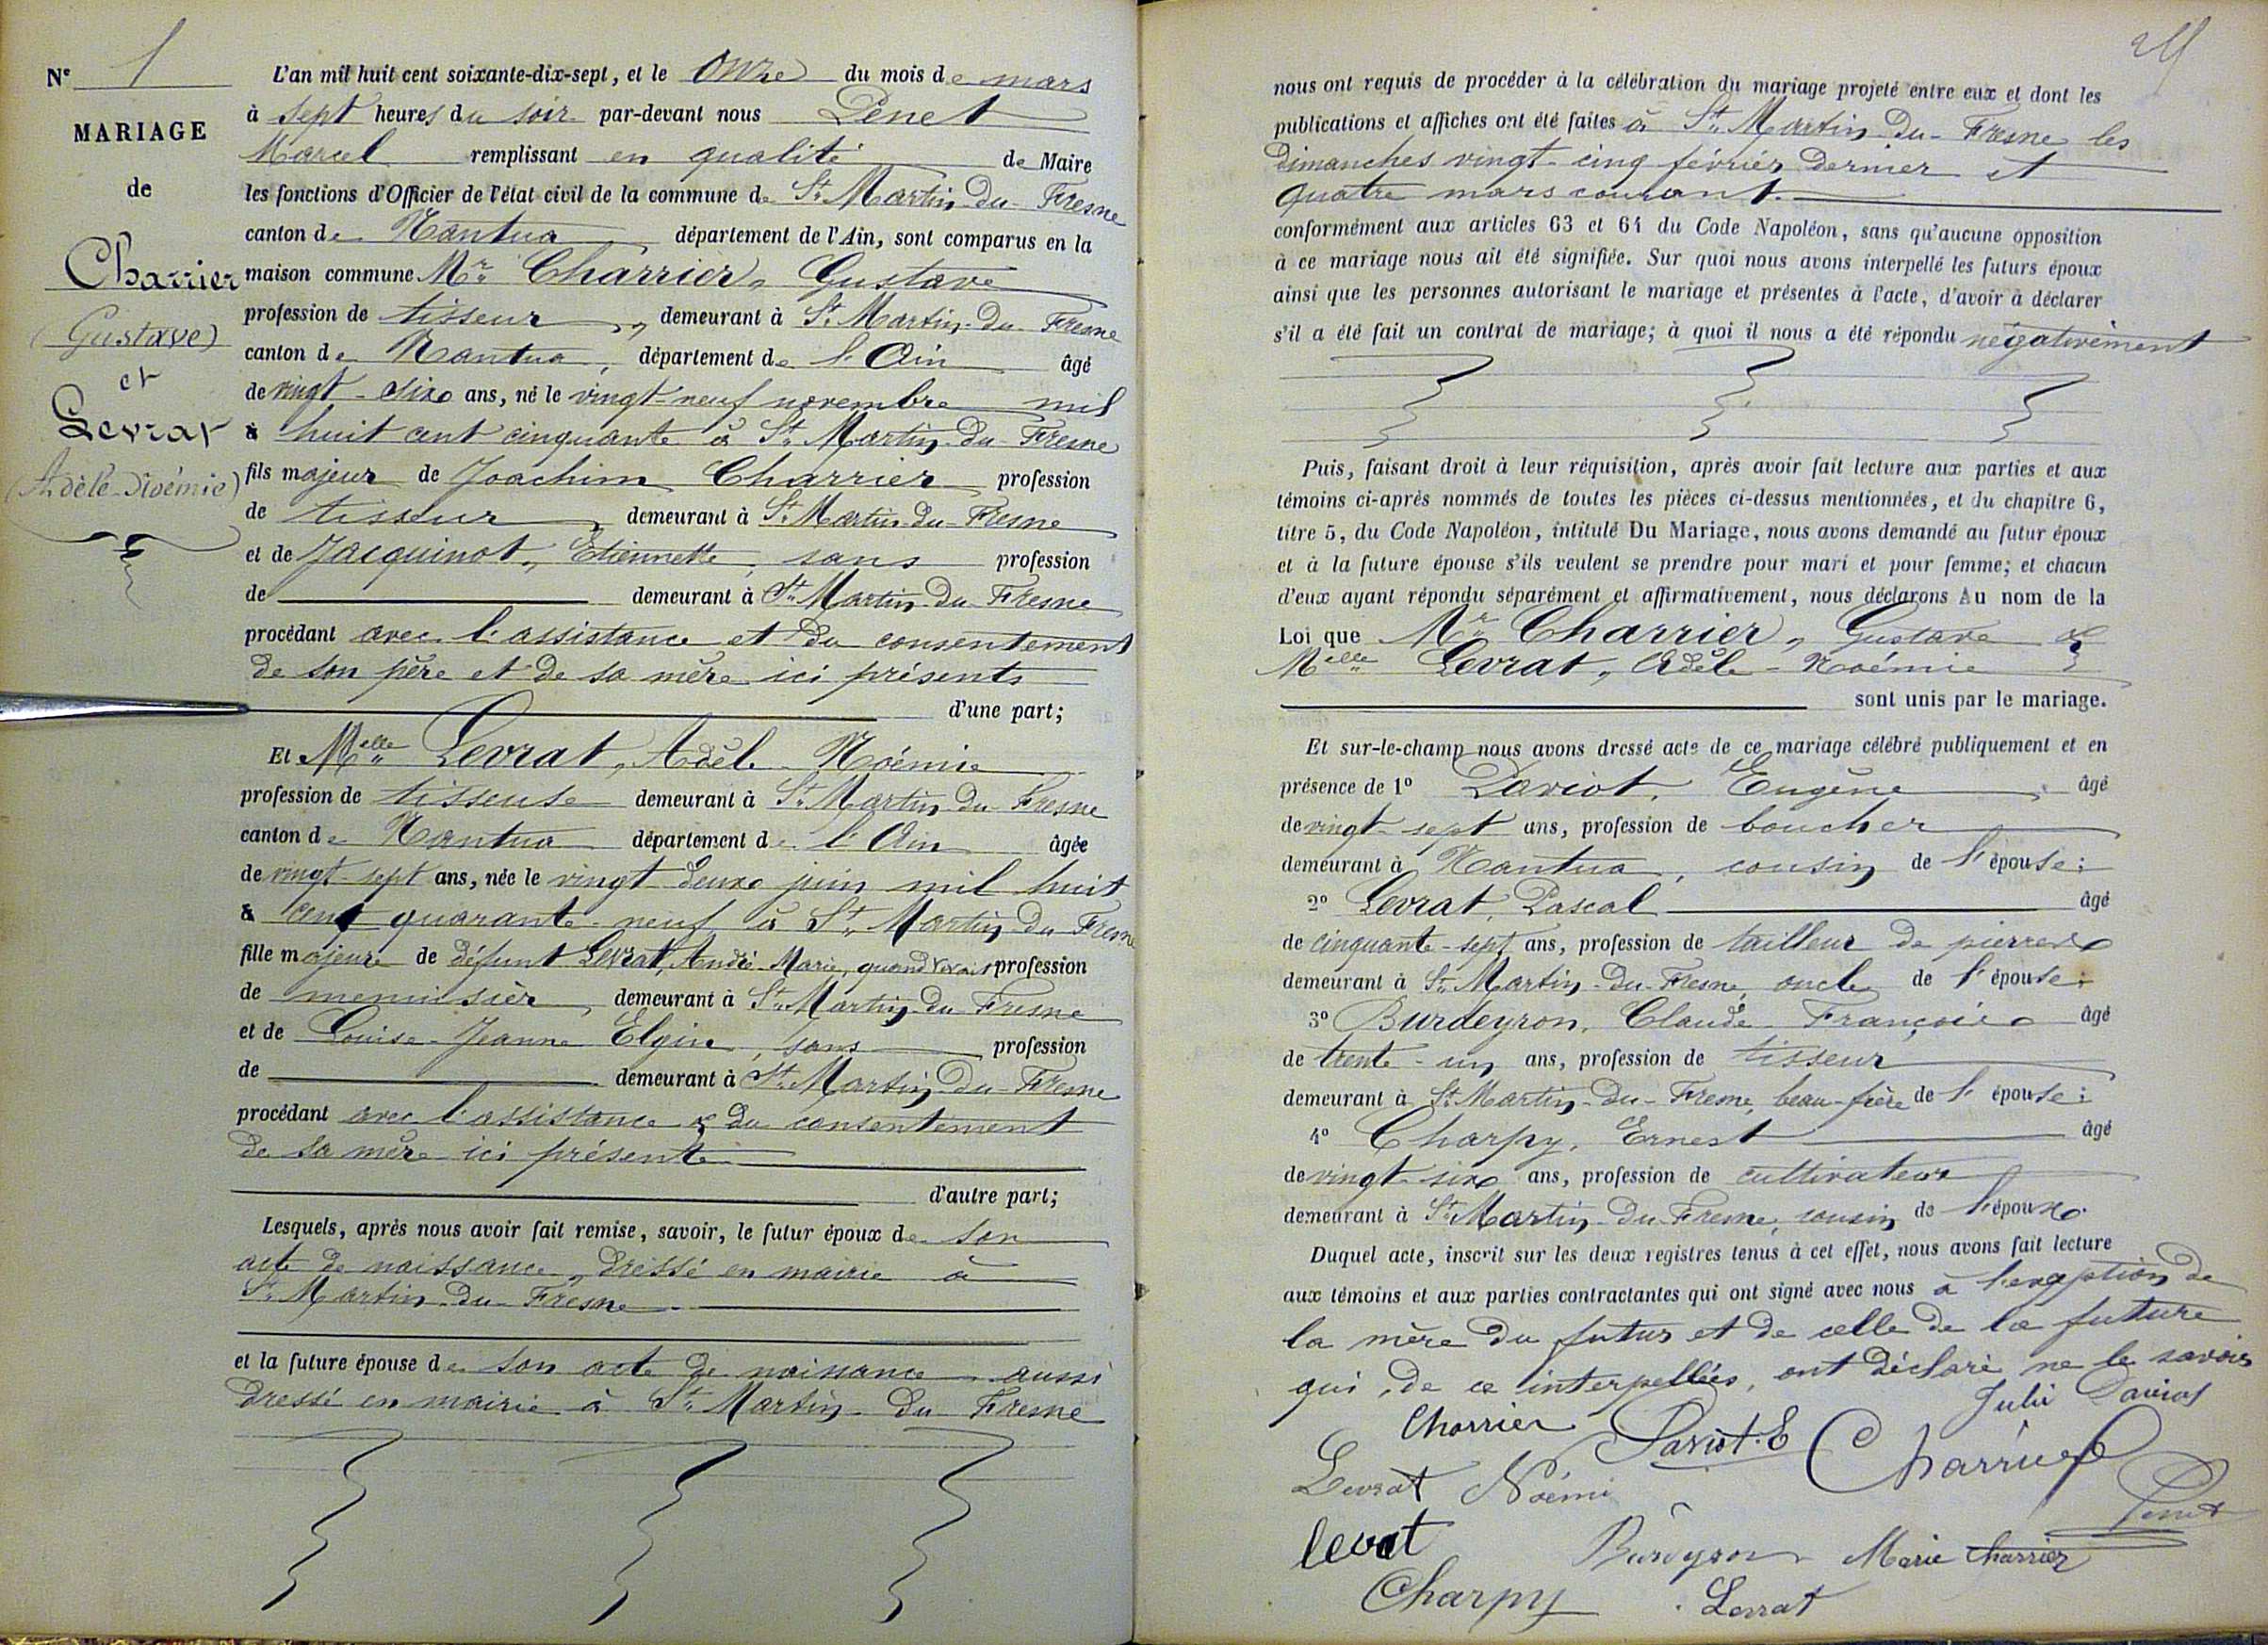 N° 1
MARIAGE
de
Charrier
(Gustave)
et
Levrat
(Adèle-Noémie)
L'an mil huit cent soixante-dix-sept, et le onze du mois de mars
à sept heures du soir par-devant nous Penet
Marcel remplissant en qualité de Maire
les fonctions d'Officier de l'état civil de la commune de St Martin-du-Fresne
canton de Nantua département de l'Ain, sont comparus en la
maison commune Mr Charrier, Gustave
profession de tisseur, demeurant à St Martin-du Fresne
canton de Nantua, département de l'Ain âgé
de vingt-six ans, né le vingt-neuf novembre mil
à huit cent cinquante à St Martin-du-Fresne
fils majeur de Joachim Charrier profession
de tisseur, demeurant à St Martin-du-Fresne
et de Jacquinot, Etiennette, sans profession
de demeurant à St Martin-du-Fresne
procédant avec l'assistance et du consentement
de son père et de sa mère ici présents
d'une part;
Et Melle Levrat, Adèle-Noémie
profession de tisseuse demeurant à St Martin-du-Fresne
canton de Nantua département de l'Ain âgée
de vingt-sept ans, née le vingt-deux juin mil huit
à cent quarante-neuf à St Martin-du-Fresne
fille majeure de défunt Levrat, André-Marie, quand vivait profession
de menuisier, demeurant à St Martin-du-Fresne
et de Louise-Jeanne Elgin, sans profession
de demeurant à St Martin-du-Fresne
procédant avec l'assistance & du consentement
de sa mère ici présente
d'autre part;
Lesquels, après nous avoir fait remise, savoir, le futur époux de son
acte de naissance, dressé en mairie à
St Martin-du-Fresne
et la future épouse de son acte de naissance aussi
dressé en mairie à St Martin-du Fresne
nous ont requis de procéder à la célébration du mariage projeté entre eux et dont les
publications et affiches ont été faites à St Martin-du-Fresne les
dimanches vingt-cinq février dernier et
quatre mars courant.
conformément aux articles 63 et 64 du Code Napoléon, sans qu'aucune opposition
à ce mariage nous ait été signifiée. Sur quoi nous avons interpellé les futurs époux
ainsi que les personnes autorisant le mariage et présentes à l'acte, d'avoir à déclarer
s'il a été fait un contrat de mariage; à quoi il nous a été répondu négativement
Puis, faisant droit à leur réquisition, après avoir fait lecture aux parties et aux
témoins ci-après nommés de toutes les pièces ci-dessus mentionnées, et du chapitre 6,
titre 5, du Code Napoléon, intitulé Du Mariage, nous avons demandé au futur époux
et à la future épouse s'ils veulent se prendre pour mari et pour femme; et chacun
d'eux ayant répondu séparément et affirmativement, nous déclarons Au nom de la
Loi que Mr Charrier, Gustave &
Melle Levrat, Adèle-Noémie
sont unis par le mariage.
Et sur-le-champ nous avons dressé acte de ce mariage célébré publiquement et en
présence de 1° Daviot, Eugène, âgé
de vingt-sept ans, profession de boucher
demeurant à Nantua, cousin de l'épouse;
2° Levrat, Pascal âgé
de cinquante-sept ans, profession de tailleur de pierres
demeurant à St Martin-du-Fresne, oncle de l'épouse;
3° Burdeyron, Claude-François âgé
de trente-un ans, profession de tisseur
demeurant à St Martin-du-Fresne, beau-frère de l'épouse;
4° Charpy, Ernest âgé
de vingt-six ans, profession de cultivateur
demeurant à St Martin-du-Fresne, cousin de l'époux.
Duquel acte, inscrit sur les deux registres tenus à cet effet, nous avons fait lecture
aux témoins et aux parties contractantes qui ont signé avec nous à l'exception de
la mère du futur et de celle de la future
qui, de ce interpellées, ont déclaré ne le savoir
Julie Daviot
Charrier Daviot. E Charrier
Levrat Noémi
Penet
levrat Burdeyron Marie Charrier
Charpy Levrat